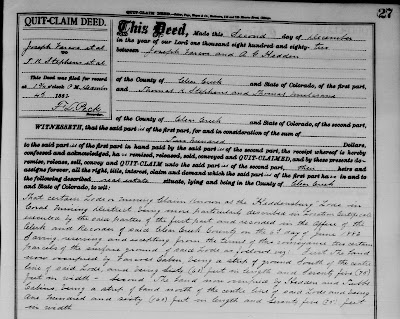 27
QUIT-CLAIM DEED.
QUIT-CLAIM DEED.
This Deed, Made this Second day of December
in the year of our Lord one thousand eight hundred and eighty two
between Joseph and A C Hadden
Joseph et al
to
et al
This Deed was filed for record
at o'clock P.M.
1882
F. L. Peck
Recorder.
of the County of Clear Creek and State of Colorado, of the first part,
and Thomas R Stephens and Thomas
of the County of Clear Creek and State of Colorado, of the second part,
WITNESSETH, that the said part of the first part, for and in consideration of the sum of
Hundred Dollars,
to the said part of the first part in hand paid by the said part of the second part, the receipt whereof is hereby
confessed and acknowledged, ha remised, released, sold, conveyed and QUIT-CLAIMED, and by these presents do
remise, release, sell, convey and QUIT-CLAIM unto the said part of the second part, their heirs and
assigns forever, all the right, title, interest, claim and demand which the said part of the first part ha in and to
the following described real estate situate, lying and being in the County of Clear Creek
and State of Colorado, to wit:
That certain Lode or Mining Claim known as the Lode in
Mining district being more particularly described in Location Certificate
executed by the said parties of the first part and recorded in the office of the
Clerk and Recorder of said Clear Creek County on the day of June 1882
Saving, reserving and excepting from the terms of this conveyance two certain
parcels of the surface ground of said Lode as follows viz: First The land
now occupied by Cabin being a strip of ground South of the centre
line of said Lode, and being Sixty (60) feet in length and Seventy five (75)
feet in width - Second The land now occupied by Hadden and
Cabins, being a strip of land north of the centre line of said Lode and being
One Hundred and sixty (160) feet in length and Seventy five (75) feet
in width